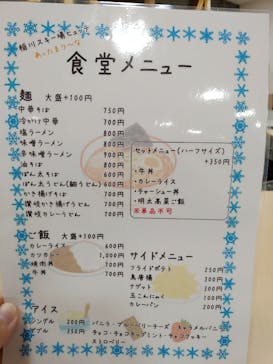 稲川スキー場ヒュッテ
あったまり〜な
食堂メニュー
麺 大盛+100円
中華そば 750円
冷かけ中華 700円
塩ラーメン 800円
味噌ラーメン 800円
辛味噌ラーメン 900円
油そば 800円
ぽん太そば 600円
ぽん太うどん(細うどん) 600円
かき揚げそば 700円
讃岐かき揚げうどん 700円
讃岐カレーうどん 700円
セットメニュー(ハーフサイズ)
+350円
・牛丼
・カレーライス
・チャーシュー丼
・明太高菜ご飯
※単品不可
ご飯 大盛+100円
カレーライス 600円
カツカレー 1,000円
焼肉丼 700円
牛丼 700円
サイドメニュー
フライドポテト 250円
鳥唐揚 300円
ナゲット 300円
玉こんにゃく 100円
カレーパン 200円
アイス
シングル 200円
ダブル 350円
バニラ・ブルーベリーチーズ・キャラメルバニラ
チョコ・チョコチップミント・チョコクッキー
ストロベリー